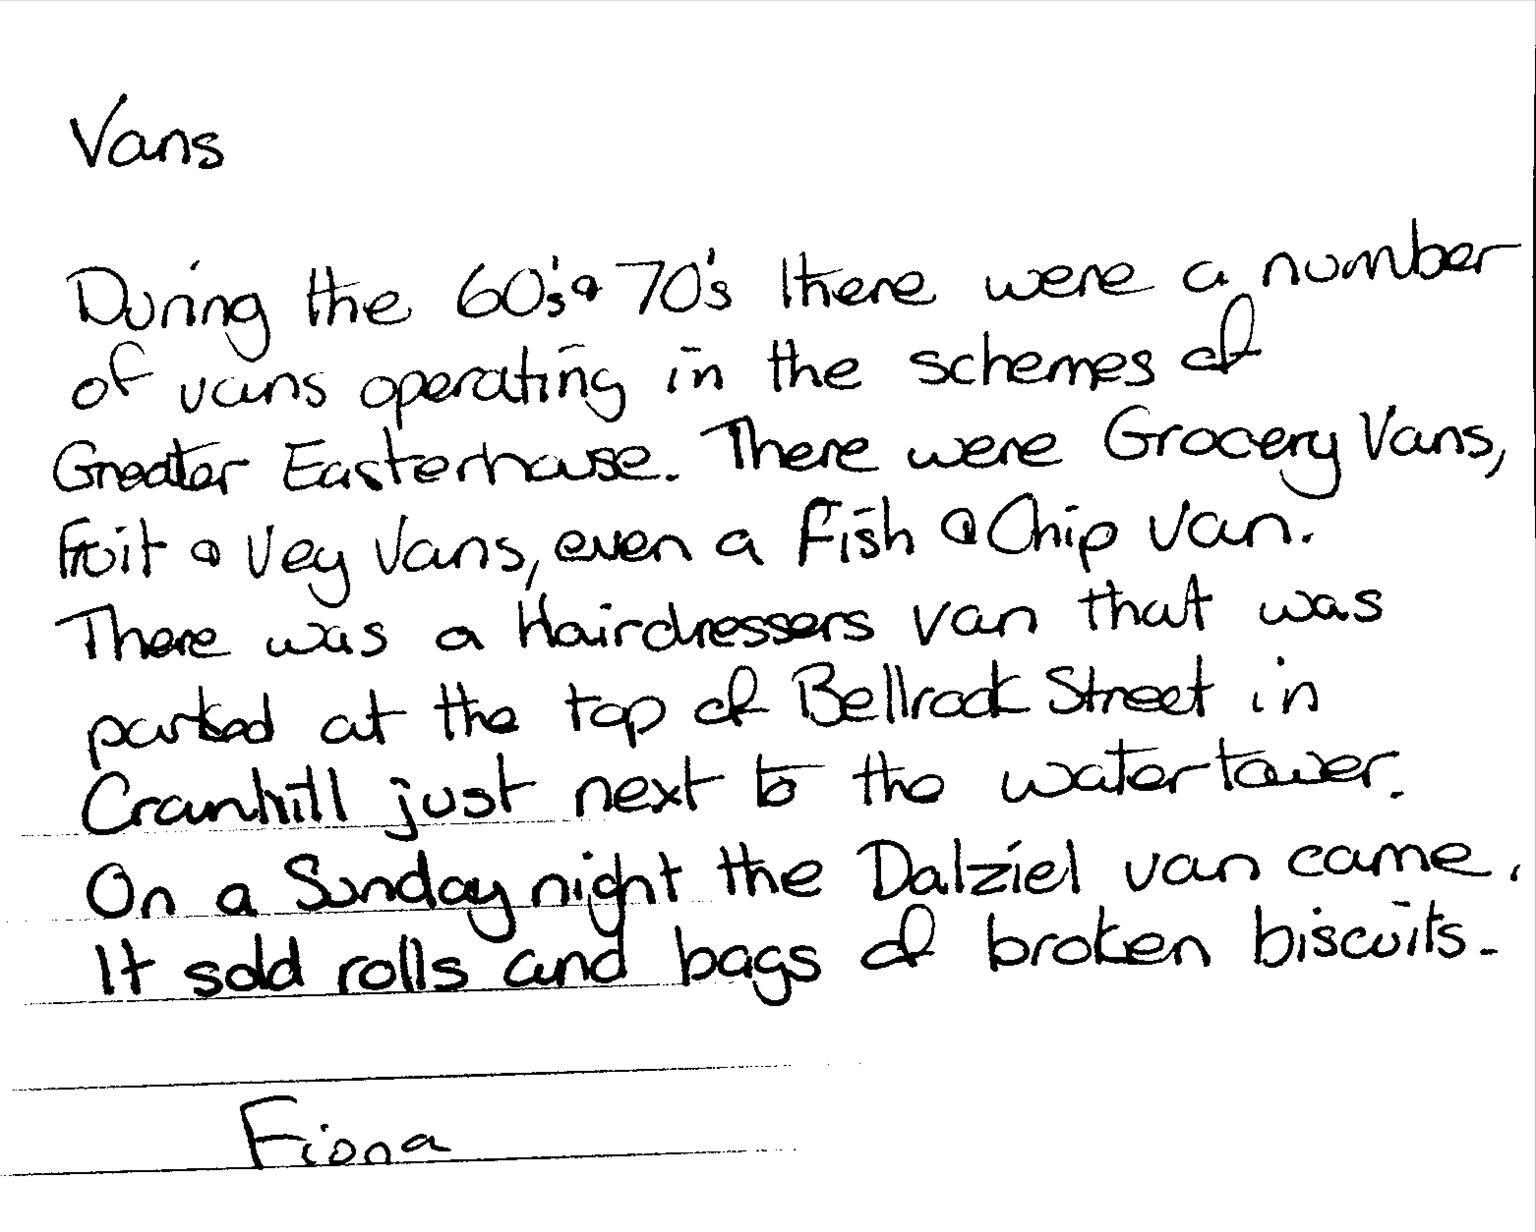 Vans
During the 60's & 70's there were a number
of vans operating in the schemes of
Greater Easterhouse. There were Grocery Vans,
Fruit & Veg Vans, even a Fish & Chip van.
There was a Hairdressers van that was
parked at the top of Bellrock Street in
Cranhill just next to the water tower.
On a Sunday night the Dalziel van came.
It sold rolls and bags of broken biscuits.
Fiona